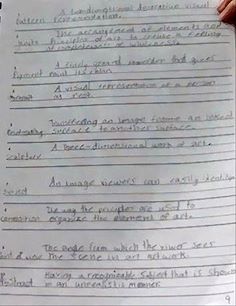 A handingtional decorative visual
pattern representation.
The arrangement of elements and
Unity Principles of art to create a feeling
of completeness or wholeness
A finely ground powder that gives
Pigment paint its color.
A visual representation of a person
Portrait
Transferring an image from an inked
Printmaking surface to another surface.
A three-dimensional work of art.
Sculpture
An image viewers can easily
The way the principles are used to
composition organize the elements of art.
The angle from which the viewer sees
the scene in an artwork.
Having a recognizable subject that is shown
Abstract in an unrealistic manner.
9